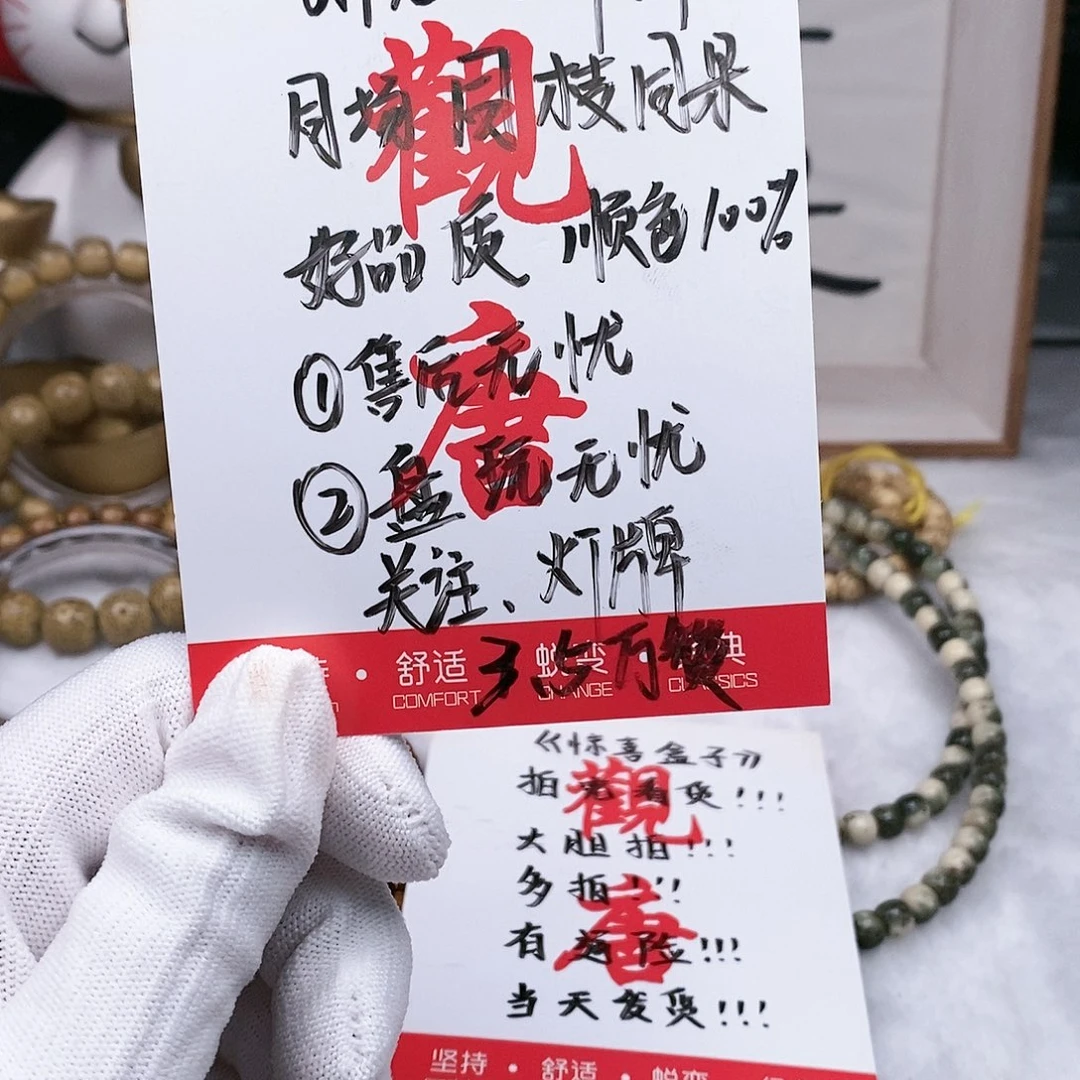 同场同枝同果
好品质 顺色100%
①售后无忧
②盘玩无忧
关注、灯牌
舒适 · 蜕变 · 典
COMFORT CHANGE CLASSICS
3.5万赞
觀
唐
《惊喜盒子》
拍完看货!!!
大胆拍!!!
多拍!!!
有运险!!!
当天发货!!!
觀
唐
坚持 · 舒适 · 蜕变